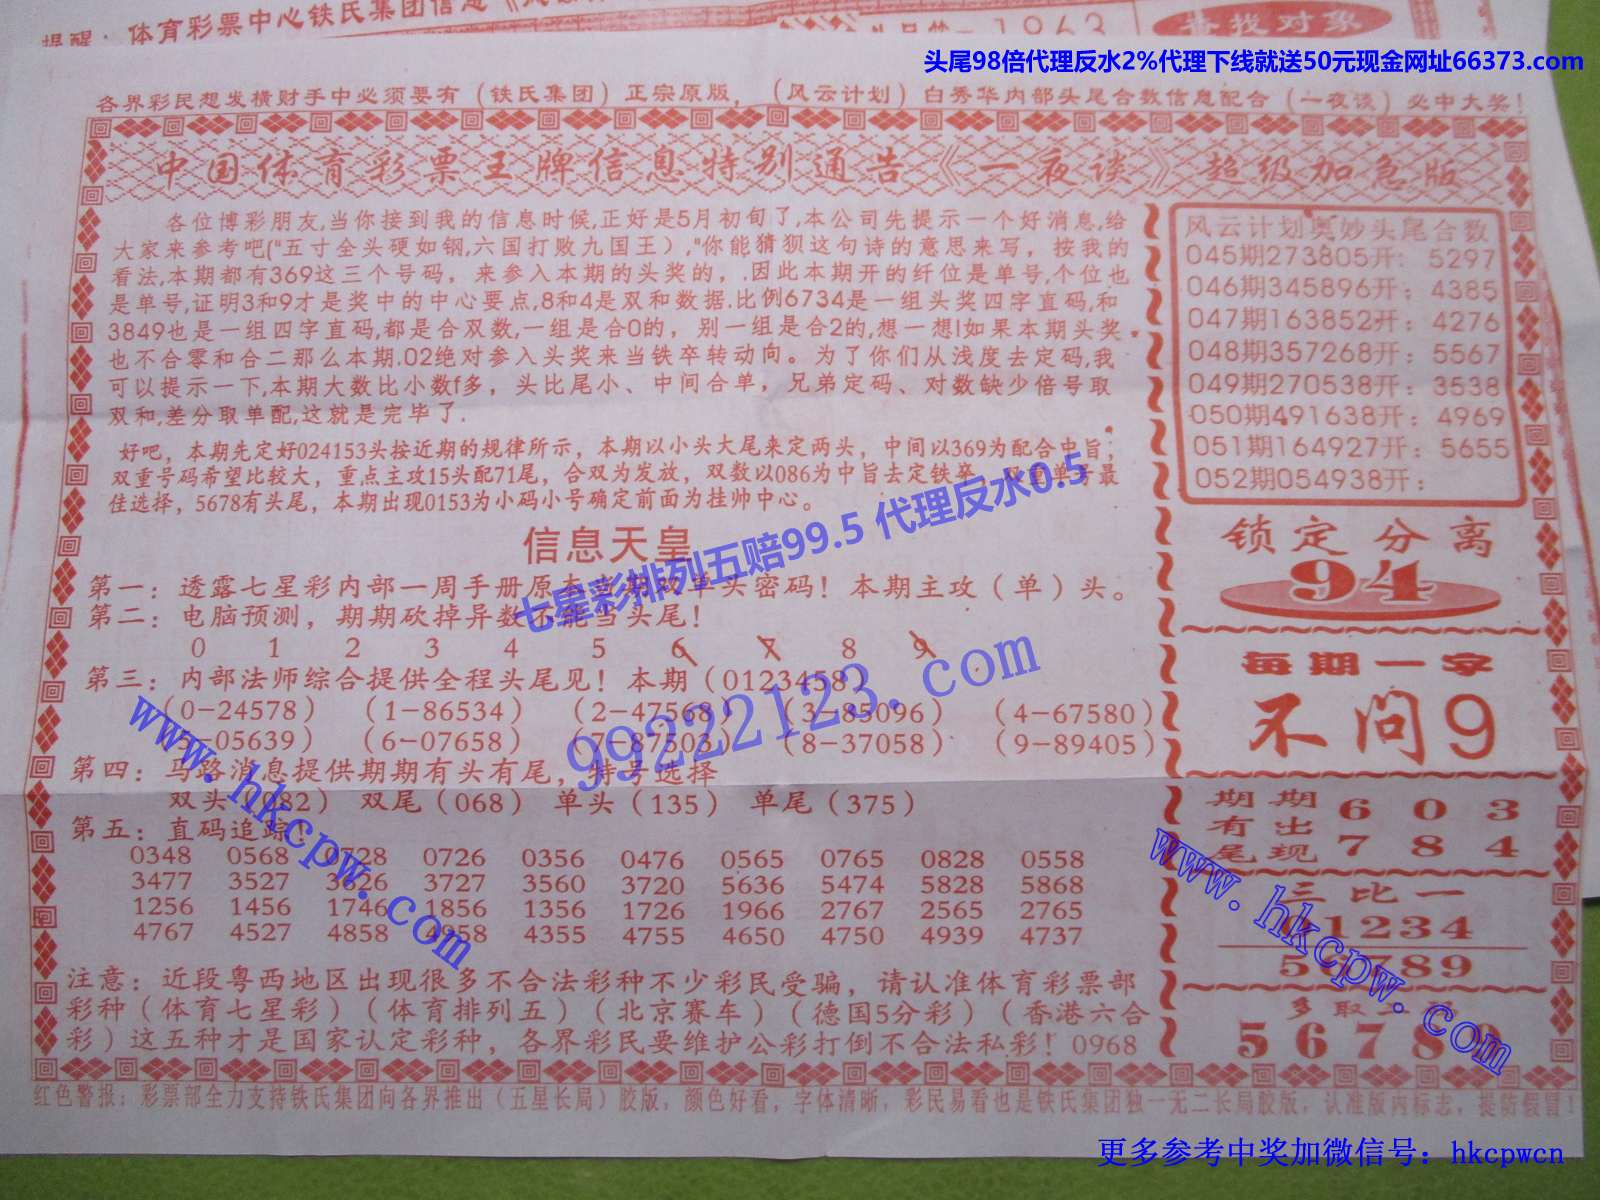 提醒：体育彩票中心铁氏集团信息
1963
寻找对象
头尾98倍代理反水2%代理下线就送50元现金网址66373.com
各界彩民想发横财手中必须要有（铁氏集团）正宗原版，（风云计划）白秀华内部头尾合数信息配合（一夜谈）必中大奖！
中国体育彩票王牌信息特别通告《一夜谈》超级加急版
各位博彩朋友,当你接到我的信息时候,正好是5月初旬了,本公司先提示一个好消息,给
大家来参考吧("五寸全头硬如钢,六国打败九国王）,"你能猜狈这句诗的意思来写，按我的
看法,本期都有369这三个号码，来参入本期的头奖的，.因此本期开的纤位是单号,个位也
是单号,证明3和9才是奖中的中心要点,8和4是双和数据.比例6734是一组头奖四字直码,和
3849也是一组四字直码,都是合双数,一组是合0的，别一组是合2的,想一想!如果本期头奖
也不合零和合二那么本期.02绝对参入头奖来当铁卒转动向。为了你们从浅度去定码,我
可以提示一下,本期大数比小数f多，头比尾小、中间合单，兄弟定码、对数缺少倍号取
双和,差分取单配,这就是完毕了.
好吧，本期先定好024153头按近期的规律所示，本期以小头大尾来定两头，中间以369为配合中旨；
双重号码希望比较大，重点主攻15头配71尾，合双为发放，双数以086为中旨去定铁卒，双重单号最
佳选择，5678有头尾，本期出现0153为小码小号确定前面为挂帅中心。
风云计划奥妙头尾合数
045期273805开：5297
046期345896开；4385
047期163852开：4276
048期357268开：5567
049期270538开：3538
050期491638开：4969
051期164927开：5655
052期054938开：
七星彩排列五赔99.5 代理反水0.5
信息天皇
第一：透露七星彩内部一周手册原本当期双单头密码！本期主攻（单）头。
第二：电脑预测，期期砍掉异数不能当头尾！
0 1 2 3 4 5 6 7 8 9
第三：内部法师综合提供全程头尾见！本期（0123458）
（0-24578）（1-86534）（2-47568）（3-85096）（4-67580）
（5-05639）（6-07658）（7-87303）（8-37058）（9-89405）
第四：马路消息提供期期有头有尾，特号选择
双头（082） 双尾（068） 单头（135） 单尾（375）
第五：直码追踪！
0348 0568 0728 0726 0356 0476 0565 0765 0828 0558
3477 3527 3626 3727 3560 3720 5636 5474 5828 5868
1256 1456 1746 1856 1356 1726 1966 2767 2565 2765
4767 4527 4858 4958 4355 4755 4650 4750 4939 4737
注意：近段粤西地区出现很多不合法彩种不少彩民受骗，请认准体育彩票部
彩种（体育七星彩）（体育排列五）（北京赛车）（德国5分彩）（香港六合
彩）这五种才是国家认定彩种，各界彩民要维护公彩打倒不合法私彩！0968
锁定分离
94
每期一字
不问9
期期 6 0 3
有出
尾现 7 8 4
三比一
01234
56789
多取
5 6 7 8 9
红色警报：彩票部全力支持铁氏集团向各界推出（五星长局）胶版，颜色好看，字体清晰，彩民易看也是铁氏集团独一无二长局胶版，认准版内标志，提防假冒！
99222123.com
www.hkcpw.com
www.hkcpw.com
更多参考中奖加微信号：hkcpwcn